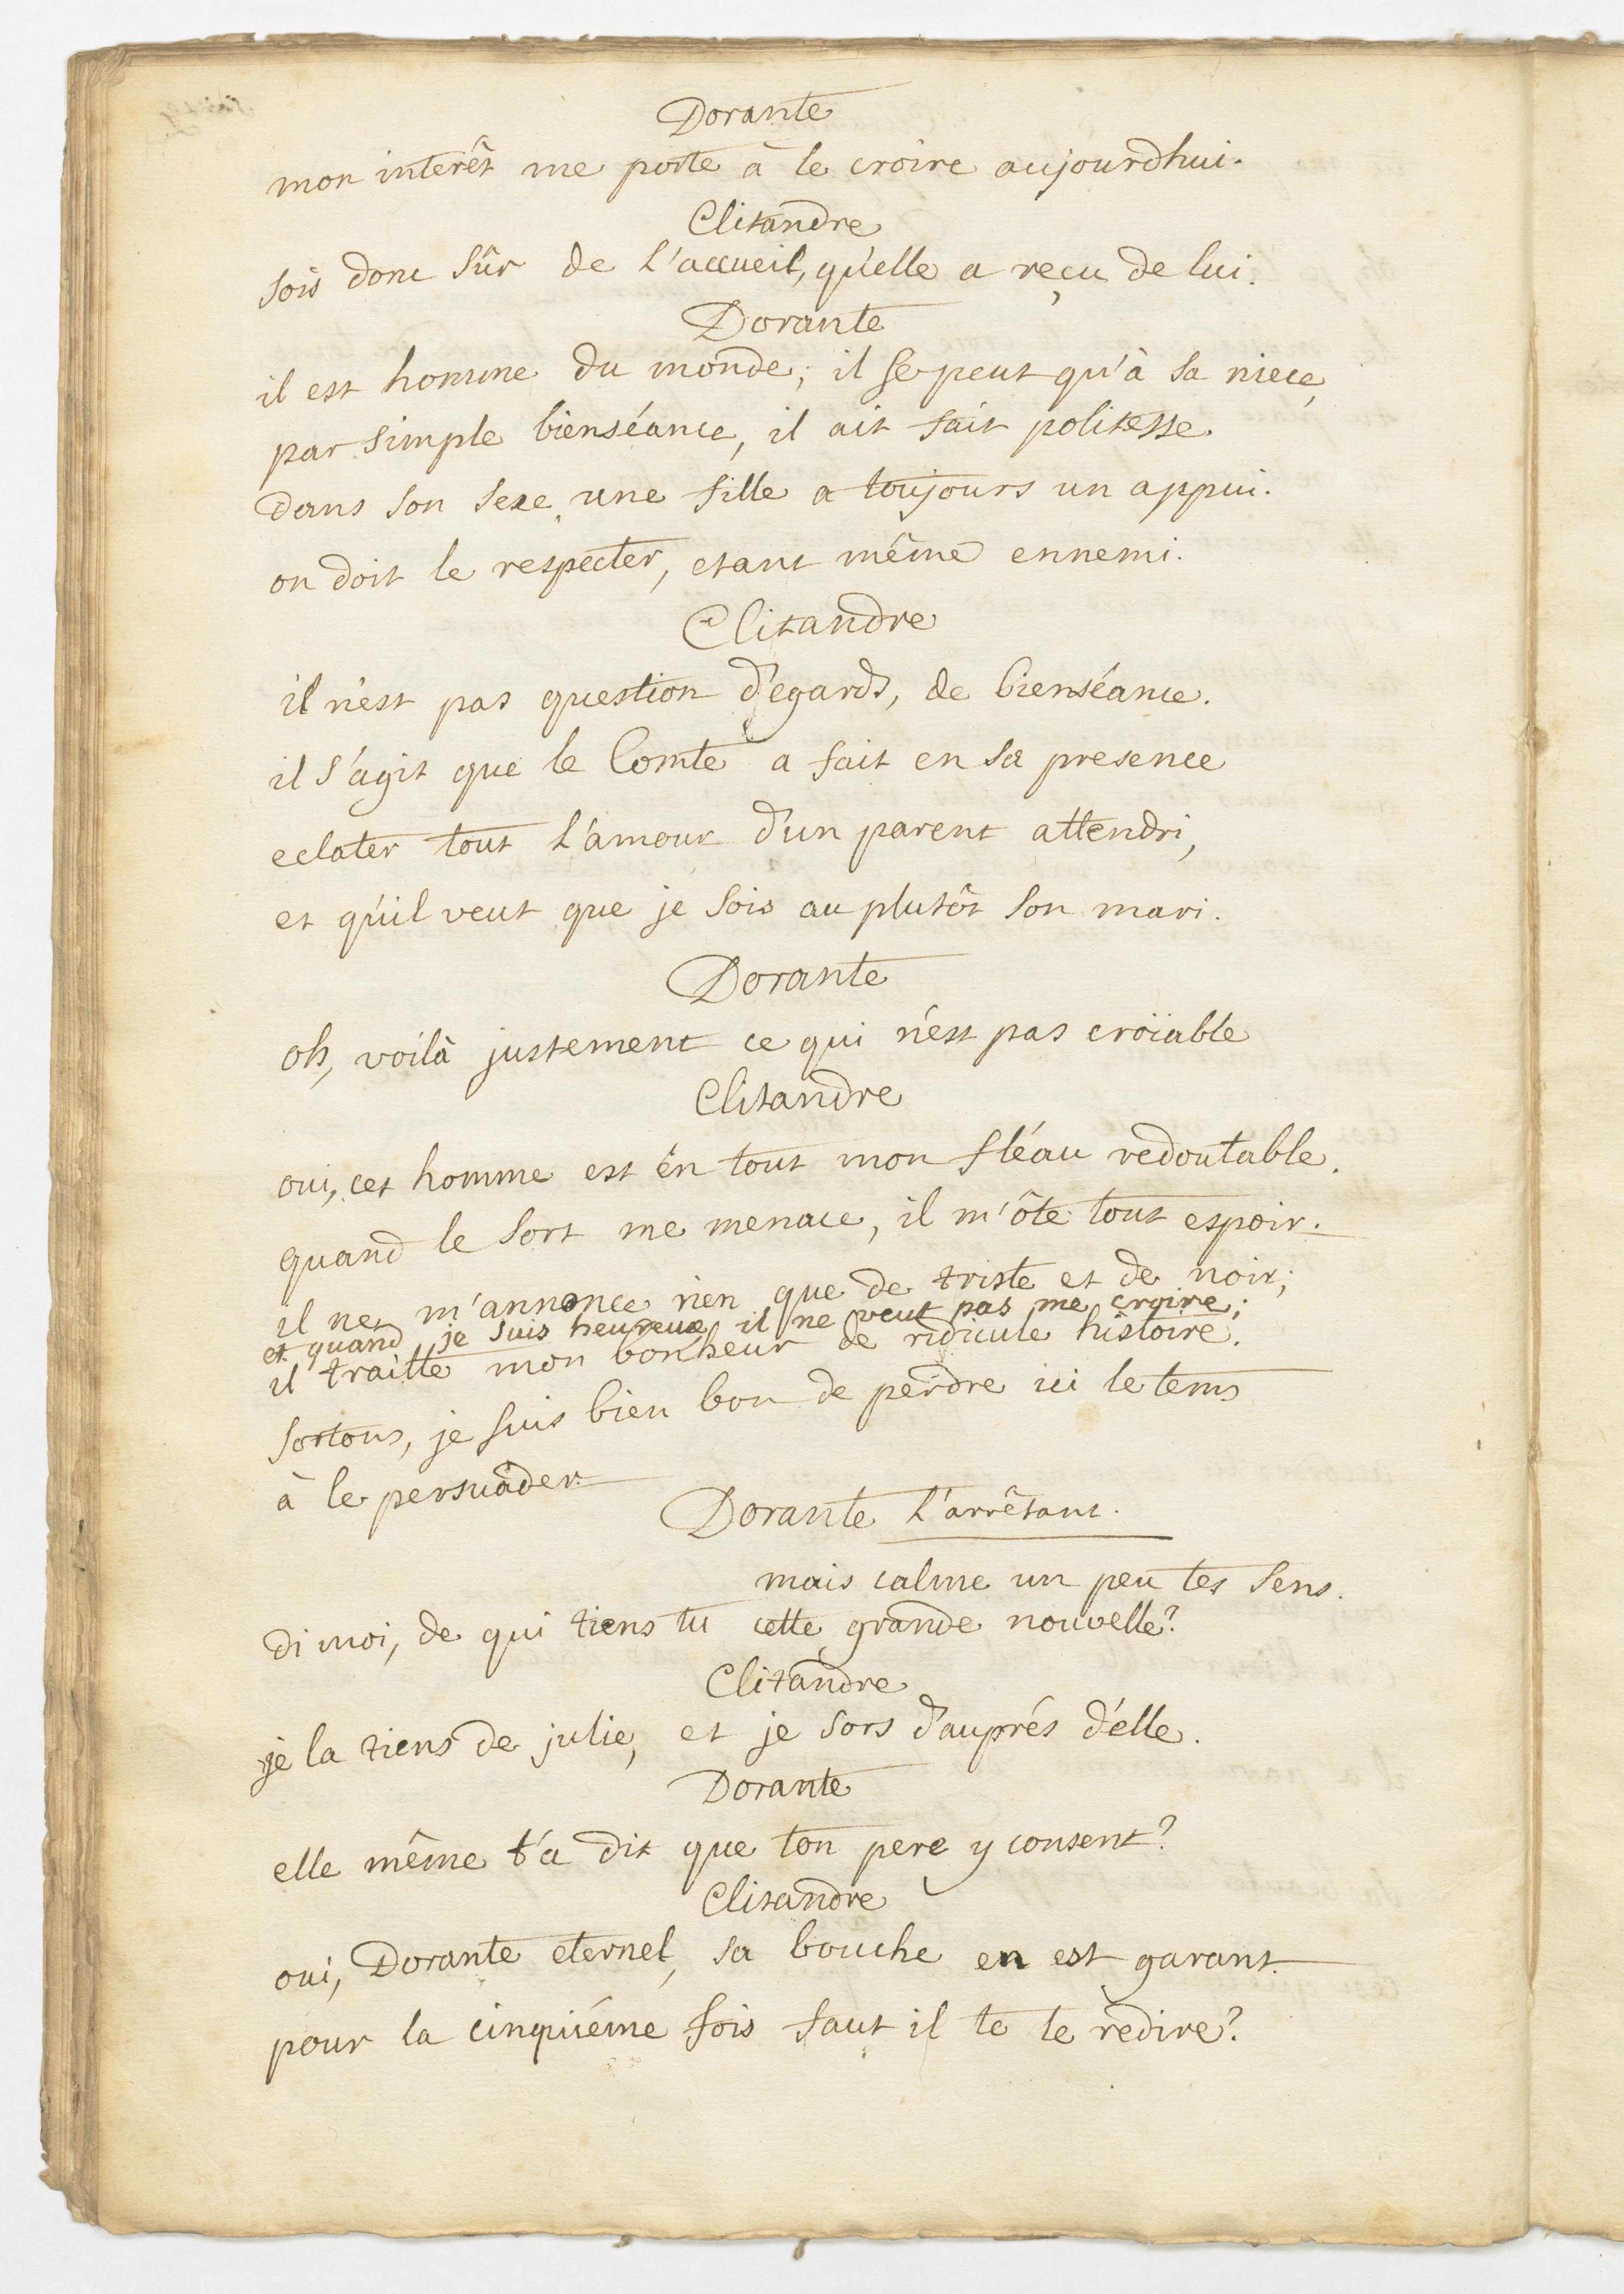 Dorante
mon interêt me porte à le croire aujourdhui.
Clitandre
sois donc sûr de l'accueil, qu'elle a reçu de lui.
Dorante
il est homme du monde; il se peut qu'à sa niece,
par simple bienséance, il ait fait politesse.
dans son sexe une fille a toujours un appui.
on doit le respecter, etant même ennemi.
Clitandre
il n'est pas question d'egards, de bienséance.
il s'agit que le Comte a fait en sa presence
eclater tout l'amour d'un parent attendri,
et qu'il veut que je sois au plutôt son mari.
Dorante
oh, voilà justement ce qui n'est pas croïable
Clitandre
oui, cet homme est en tout mon fléau redoutable.
quand le sort me menace, il m'ôte tout espoir.
il ne m'annonce rien que de triste et de noir;
et quand je suis heureux, il ne veut pas me croire;
il traitte mon bonheur de ridicule histoire.
sortons, je suis bien bon de perdre ici le tems
à le persuader.
Dorante l'arrêtant.
mais calme un peu tes sens.
di moi, de qui tiens tu cette grande nouvelle?
Clitandre
je la tiens de julie, et je sors d'auprés d'elle.
Dorante
elle même t'a dit que ton pere y consent?
Clitandre
oui, Dorante eternel, sa bouche en est garant.
pour la cinquiéme fois faut il te le redire?